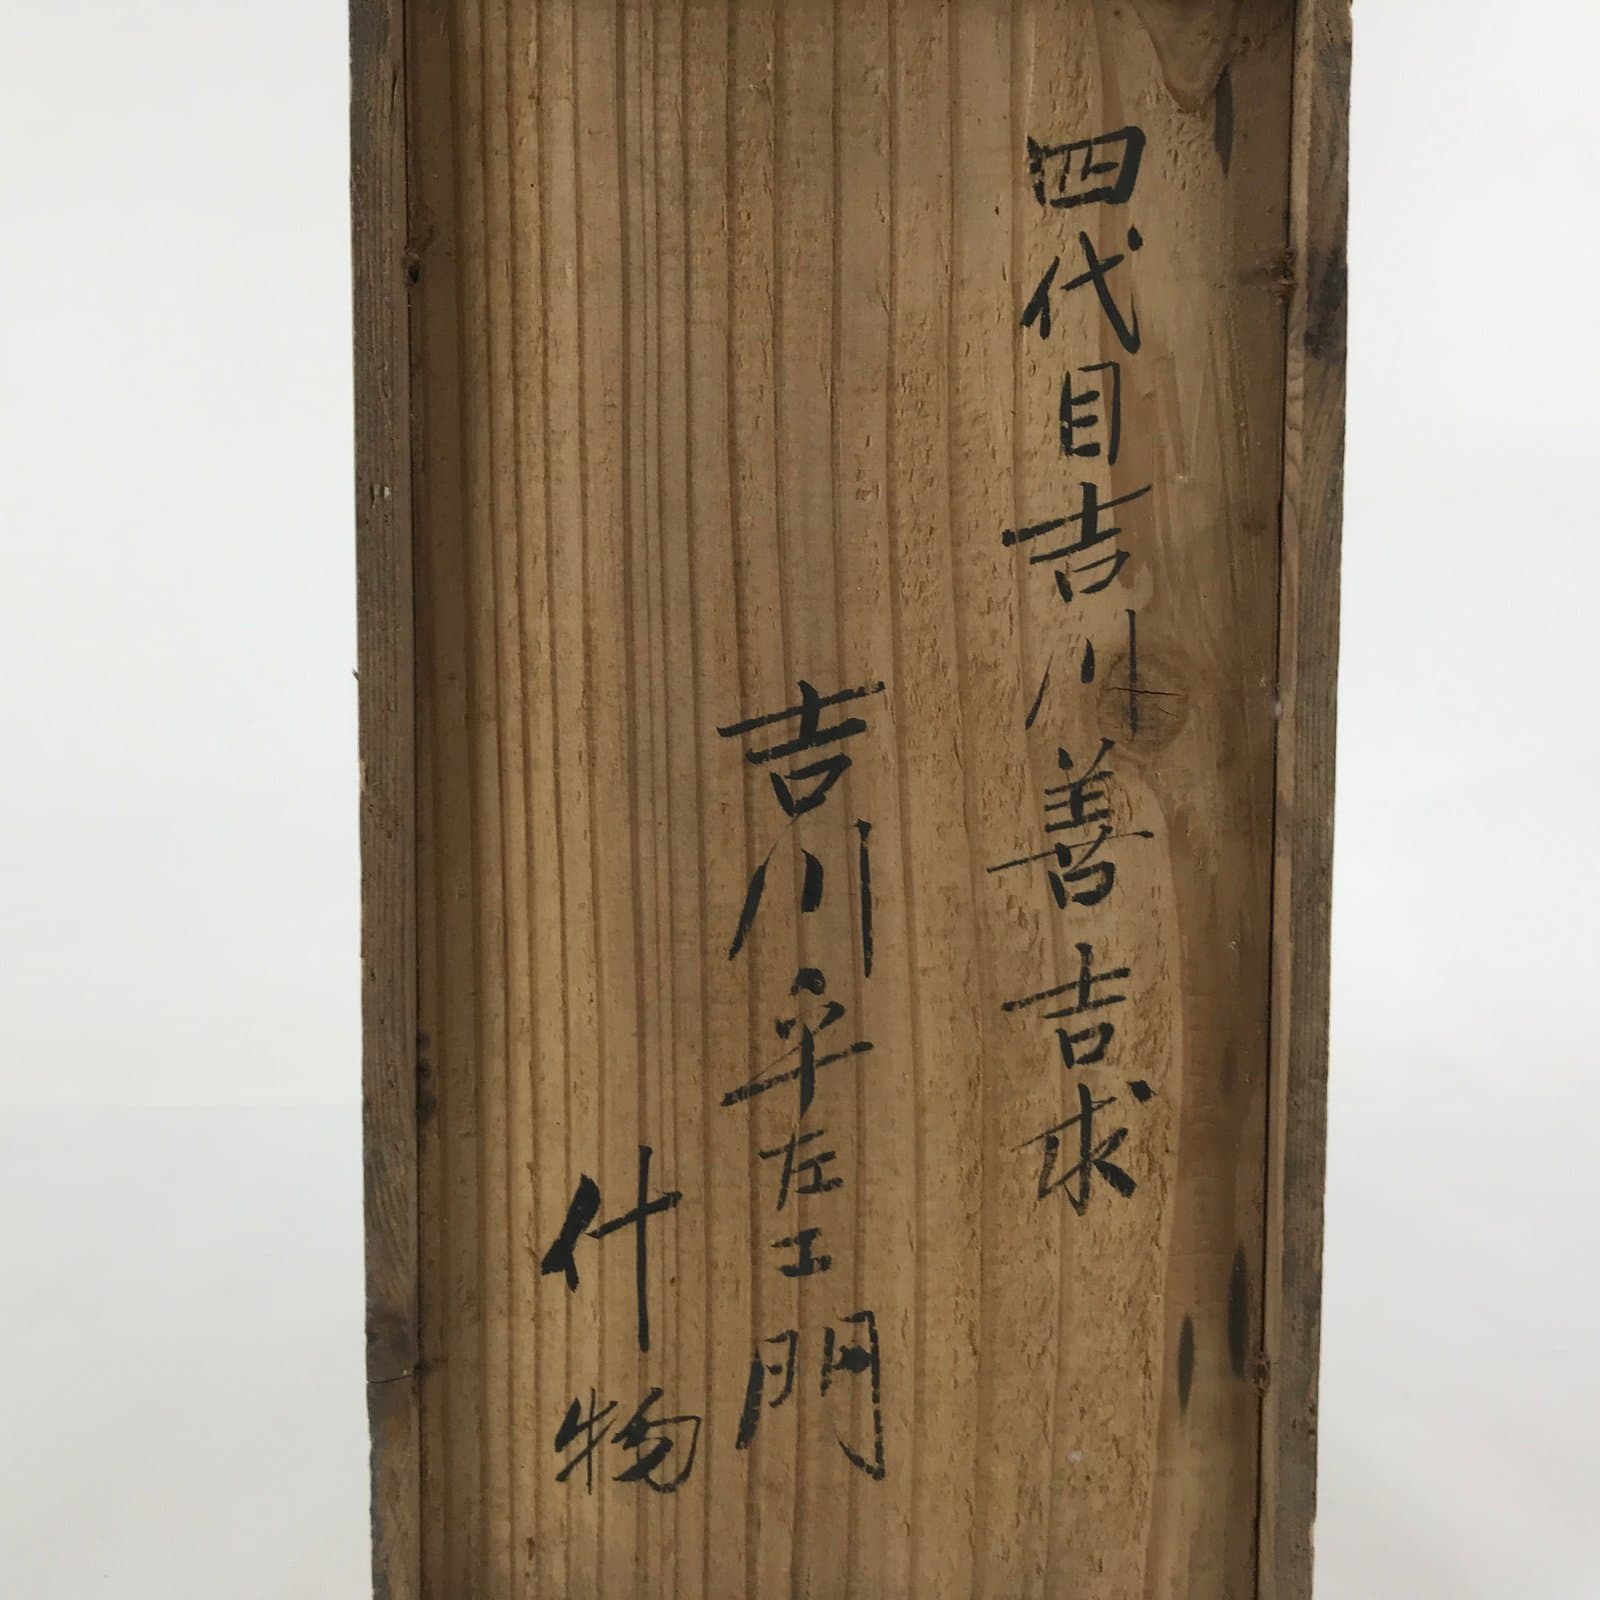 四代目吉川善吉求
吉川平左エ門
什物